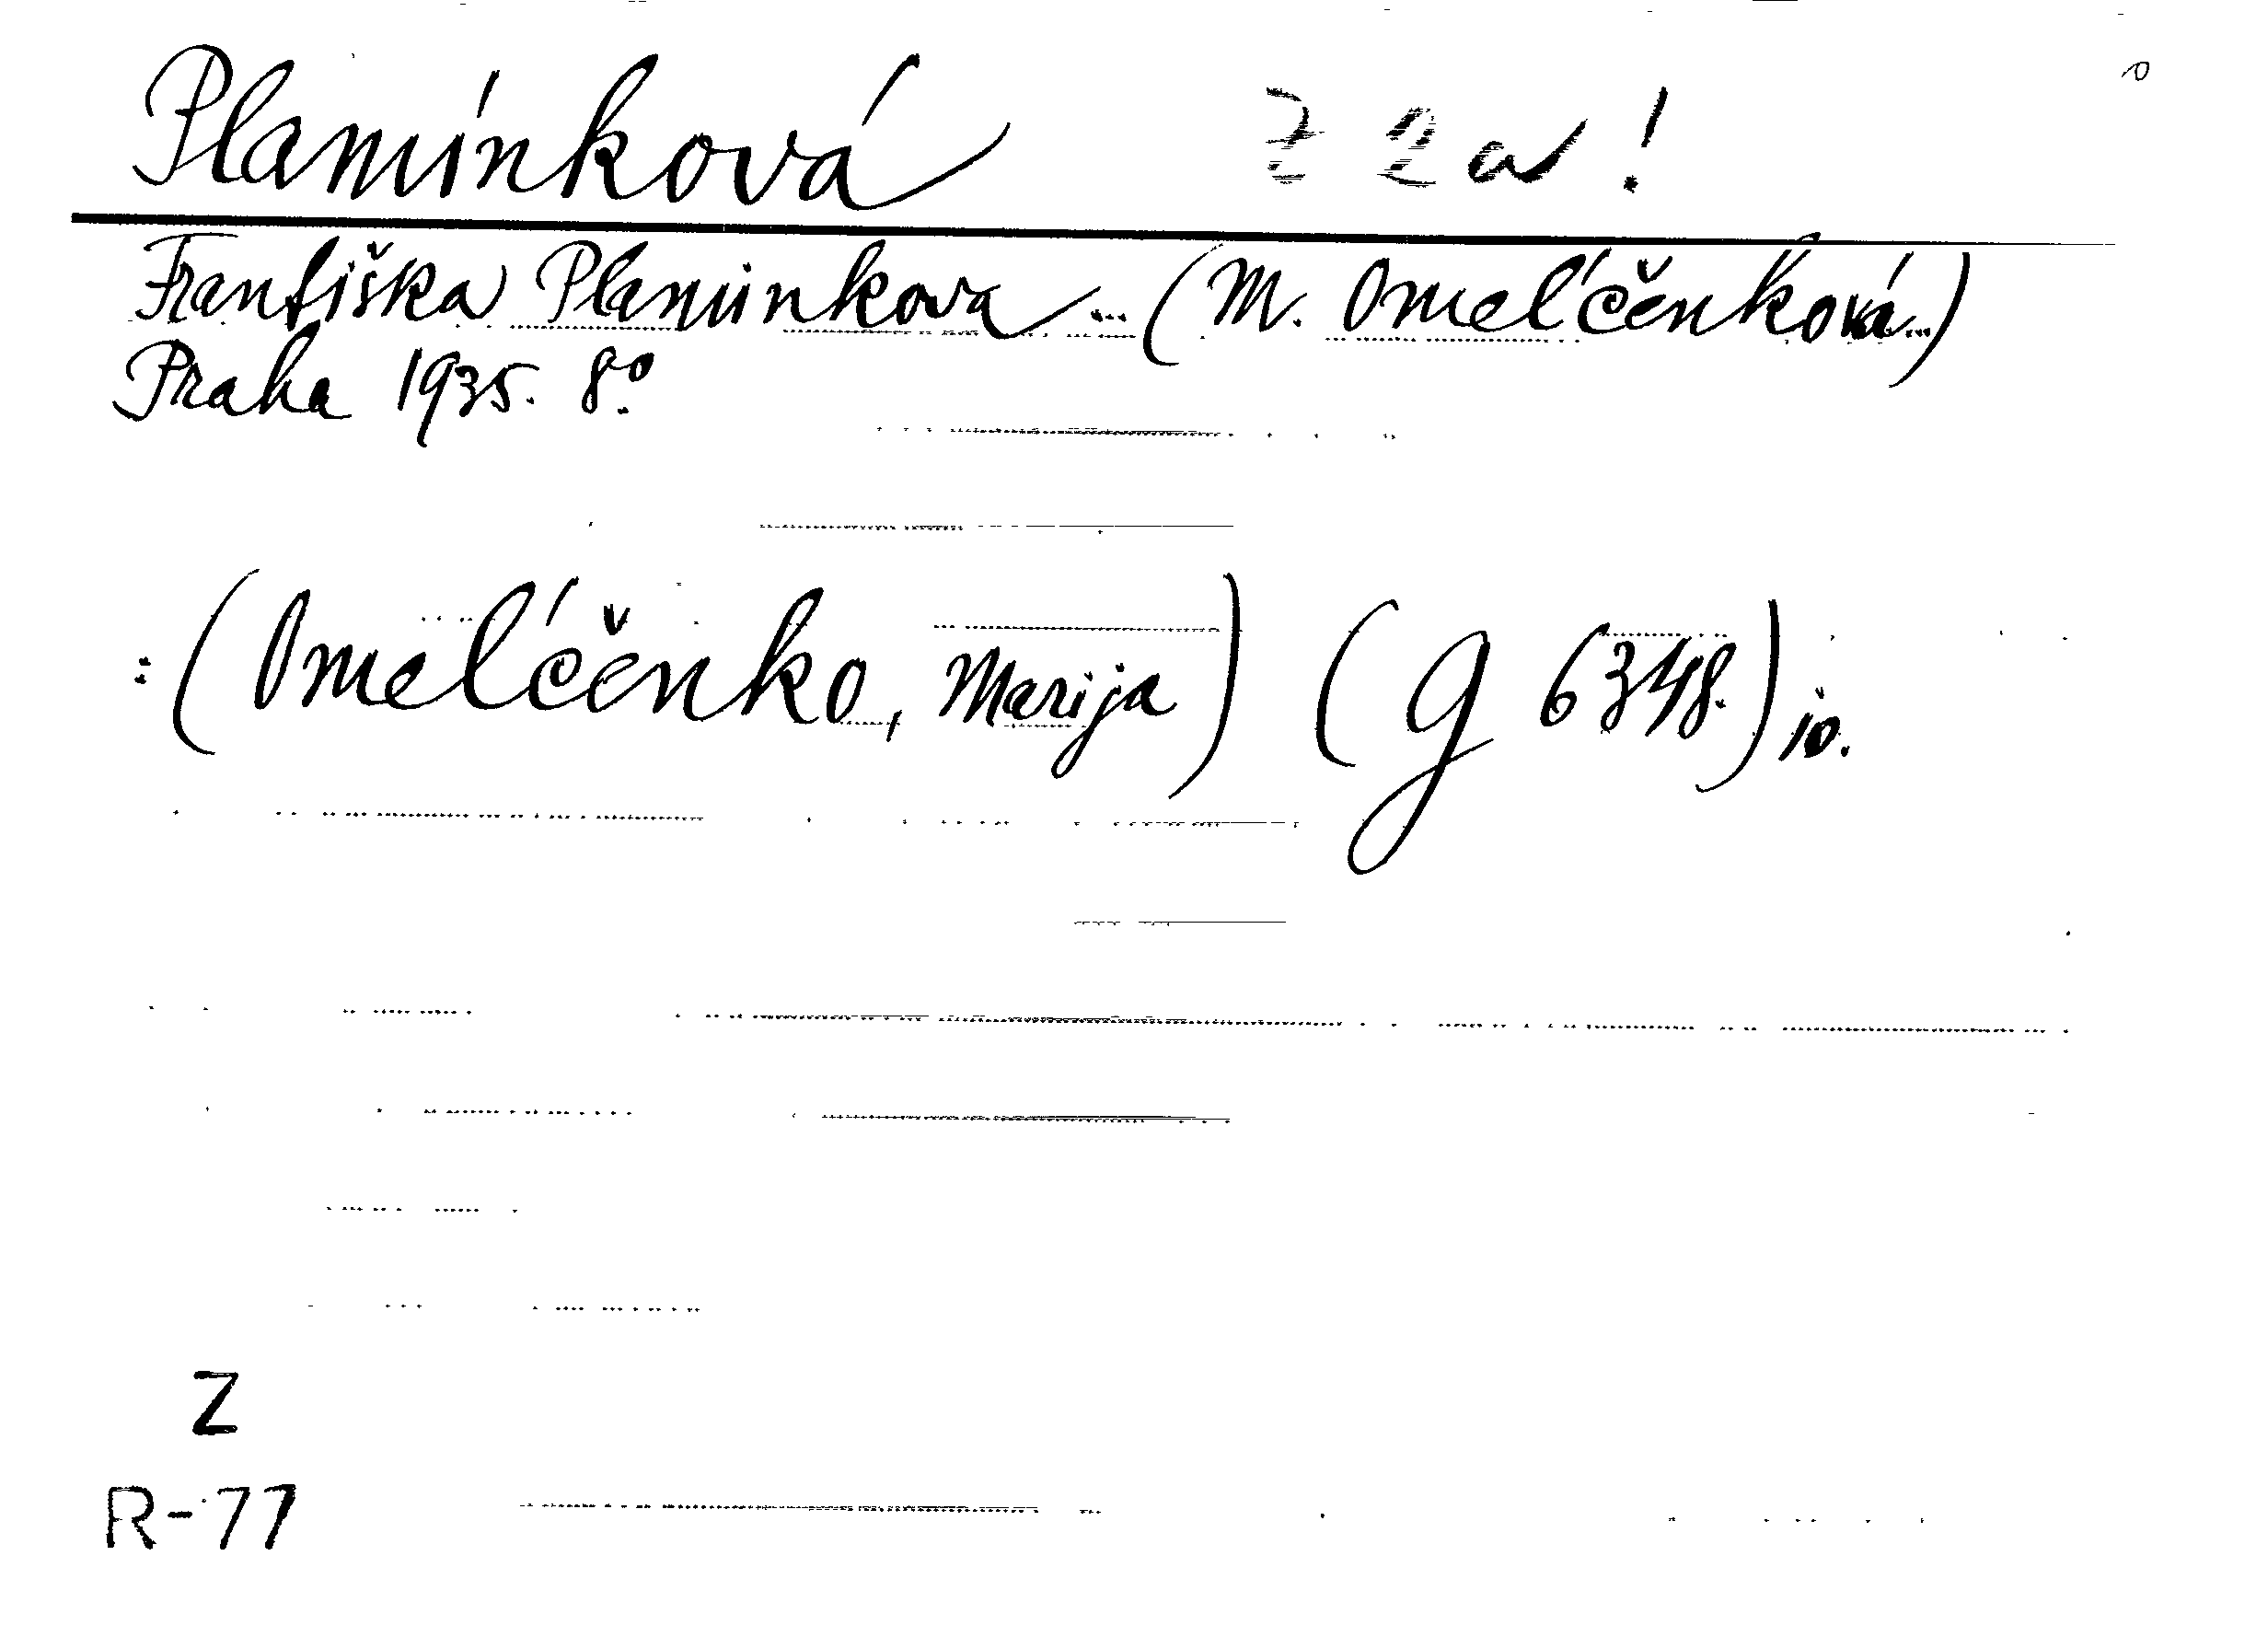 Plamínková
Františka Plamínkova... (M. Omel'čenková...)
Praha 1935. 8°.
: (Omel'čenko, Marija) (g 6348.) io.
Z
R-77